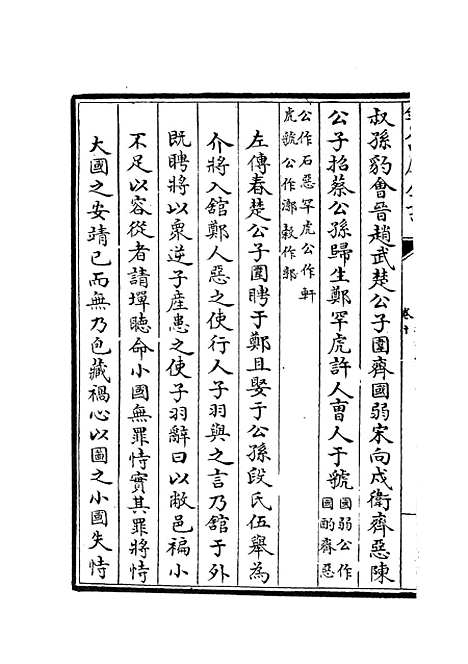 叔孫豹會晉趙武楚公子圍齊國弱宋向戌衛齊惡陳
公子招蔡公孫歸生鄭罕虎許人曹人于虢國弱公作國酌齊惡
公作石惡罕虎公作軒
虎虢公作漷穀作郭
左傳春楚公子圍聘于鄭且娶于公孫段氏伍舉為
介將入舘鄭人惡之使行人子羽與之言乃舘于外
既聘將以衆逆子產患之使子羽辭曰以敝邑褊小
不足以容從者請墠聽命小國無罪恃實其罪將恃
大國之安靖已而無乃包藏禍心以圖之小國失恃